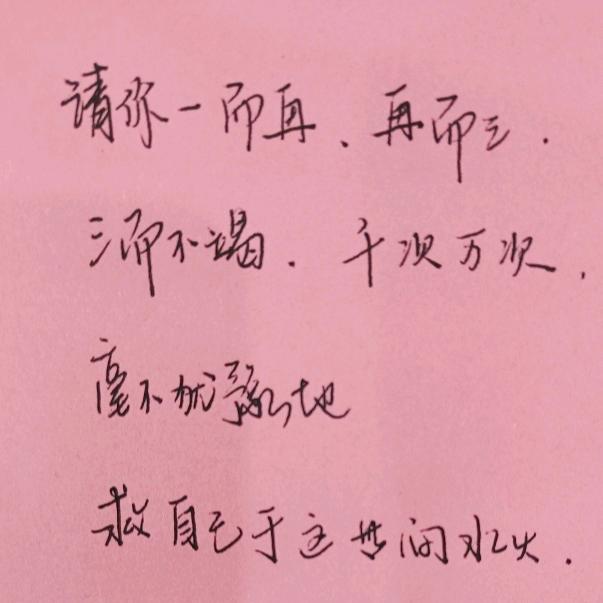 请你一而再、再而三.
三而不竭.千次万次,
毫不犹豫地
救自己于这世间水火.